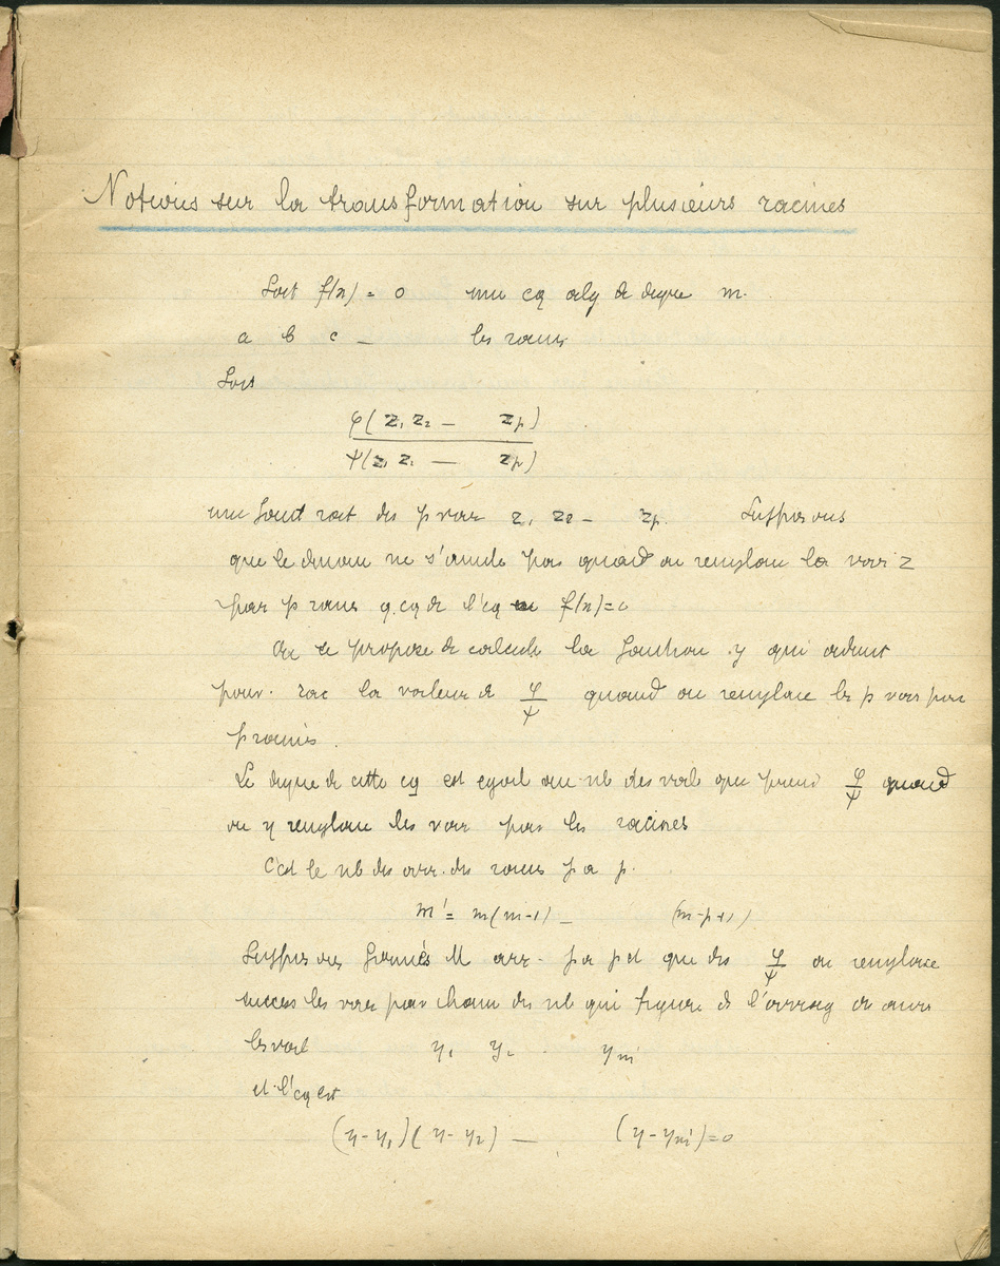 Notions sur la transformation sur plusieurs racines
Soit f(x) = 0 une eq alg de degre m.
a b c — les racines
Soit
φ(z₁ z₂ — zₚ)
ψ(z₁ z₂ — zₚ)
une fonct rat des p var z₁ z₂ — zₚ. Supposons
que le denom ne s'annule pas quand on remplace la var z
par p racines q.cq de l'eq f(x)=0
On se propose de calculer la fonction y qui admet
pour rac la valeur de φ/ψ quand on remplace les p var par
p racines.
Le degre de cette eq est egal au nb des val que prend φ/ψ quand
on y remplace les var par les racines
C'est le nb des arr. des racines p a p.
m' = m(m-1) — (m-p+1)
Supposons formés arr. p a p et que ds φ/ψ on remplace
success les var par chacun des nb qui figure ds l'arrang on aura
les val y₁ y₂ yₘ'
et l'eq est
(y-y₁)(y-y₂) — (y-yₘ')=0